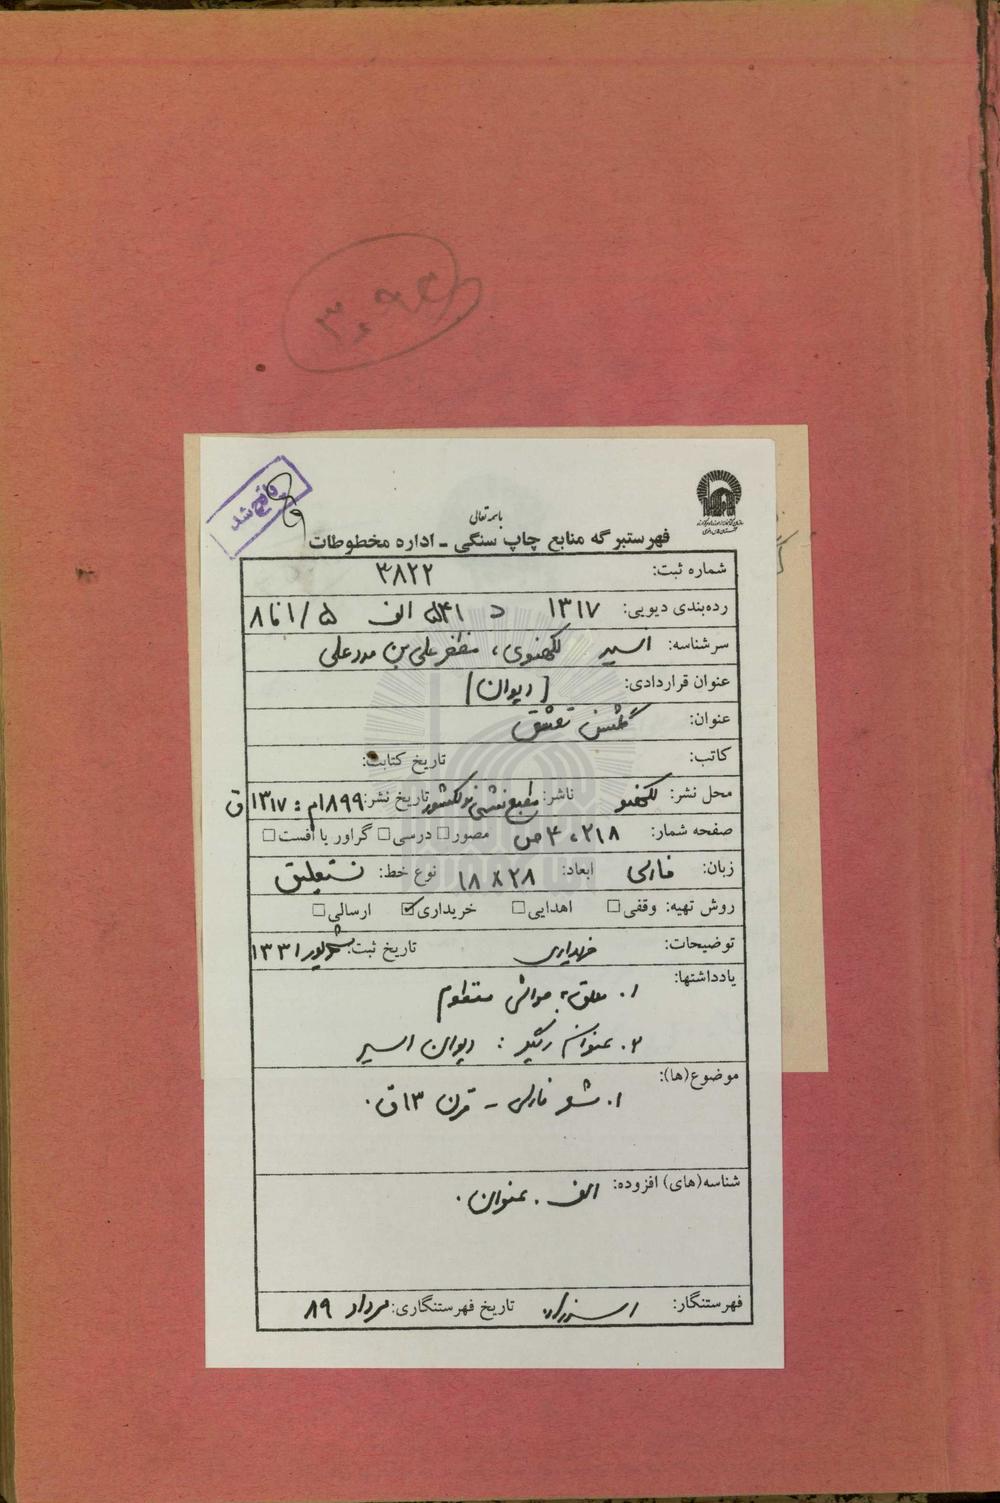 باسمه تعالی
فهرستبرگه منابع چاپ سنگی - اداره مخطوطات
شماره ثبت: ۳۸۲۲
رده‌بندی دیویی: ۱۳۱۷ د ۵۴۱ الف ۸فا۱/۵
سرشناسه: اسیر لکهنوی، مظفر علی بن مدد علی
عنوان قراردادی: [دیوان]
عنوان: گلشن تعشق
کاتب: تاریخ کتابت:
محل نشر: لکهنو ناشر: مطبع منشی نولکشور تاریخ نشر: ۱۸۹۹م = ۱۳۱۷ق
صفحه شمار: ۲۱۸، ۴ ص مصور□ درسی□ گراور یا افست□
زبان: فارسی ابعاد: ۲۸×۱۸ نوع خط: نستعلیق
روش تهیه: وقفی□ اهدایی□ خریداری☑ ارسالی□
توضیحات: خریداری تاریخ ثبت: شهریور ۱۳۳۱
یادداشتها:
۱. به حواشی منظوم
۲. عنوان دیگر: دیوان اسیر
موضوع(ها):
۱. شعر فارسی - قرن ۱۳ق.
شناسه(های) افزوده: الف. عنوان.
فهرستنگار: تاریخ فهرستنگاری: مرداد ۸۹